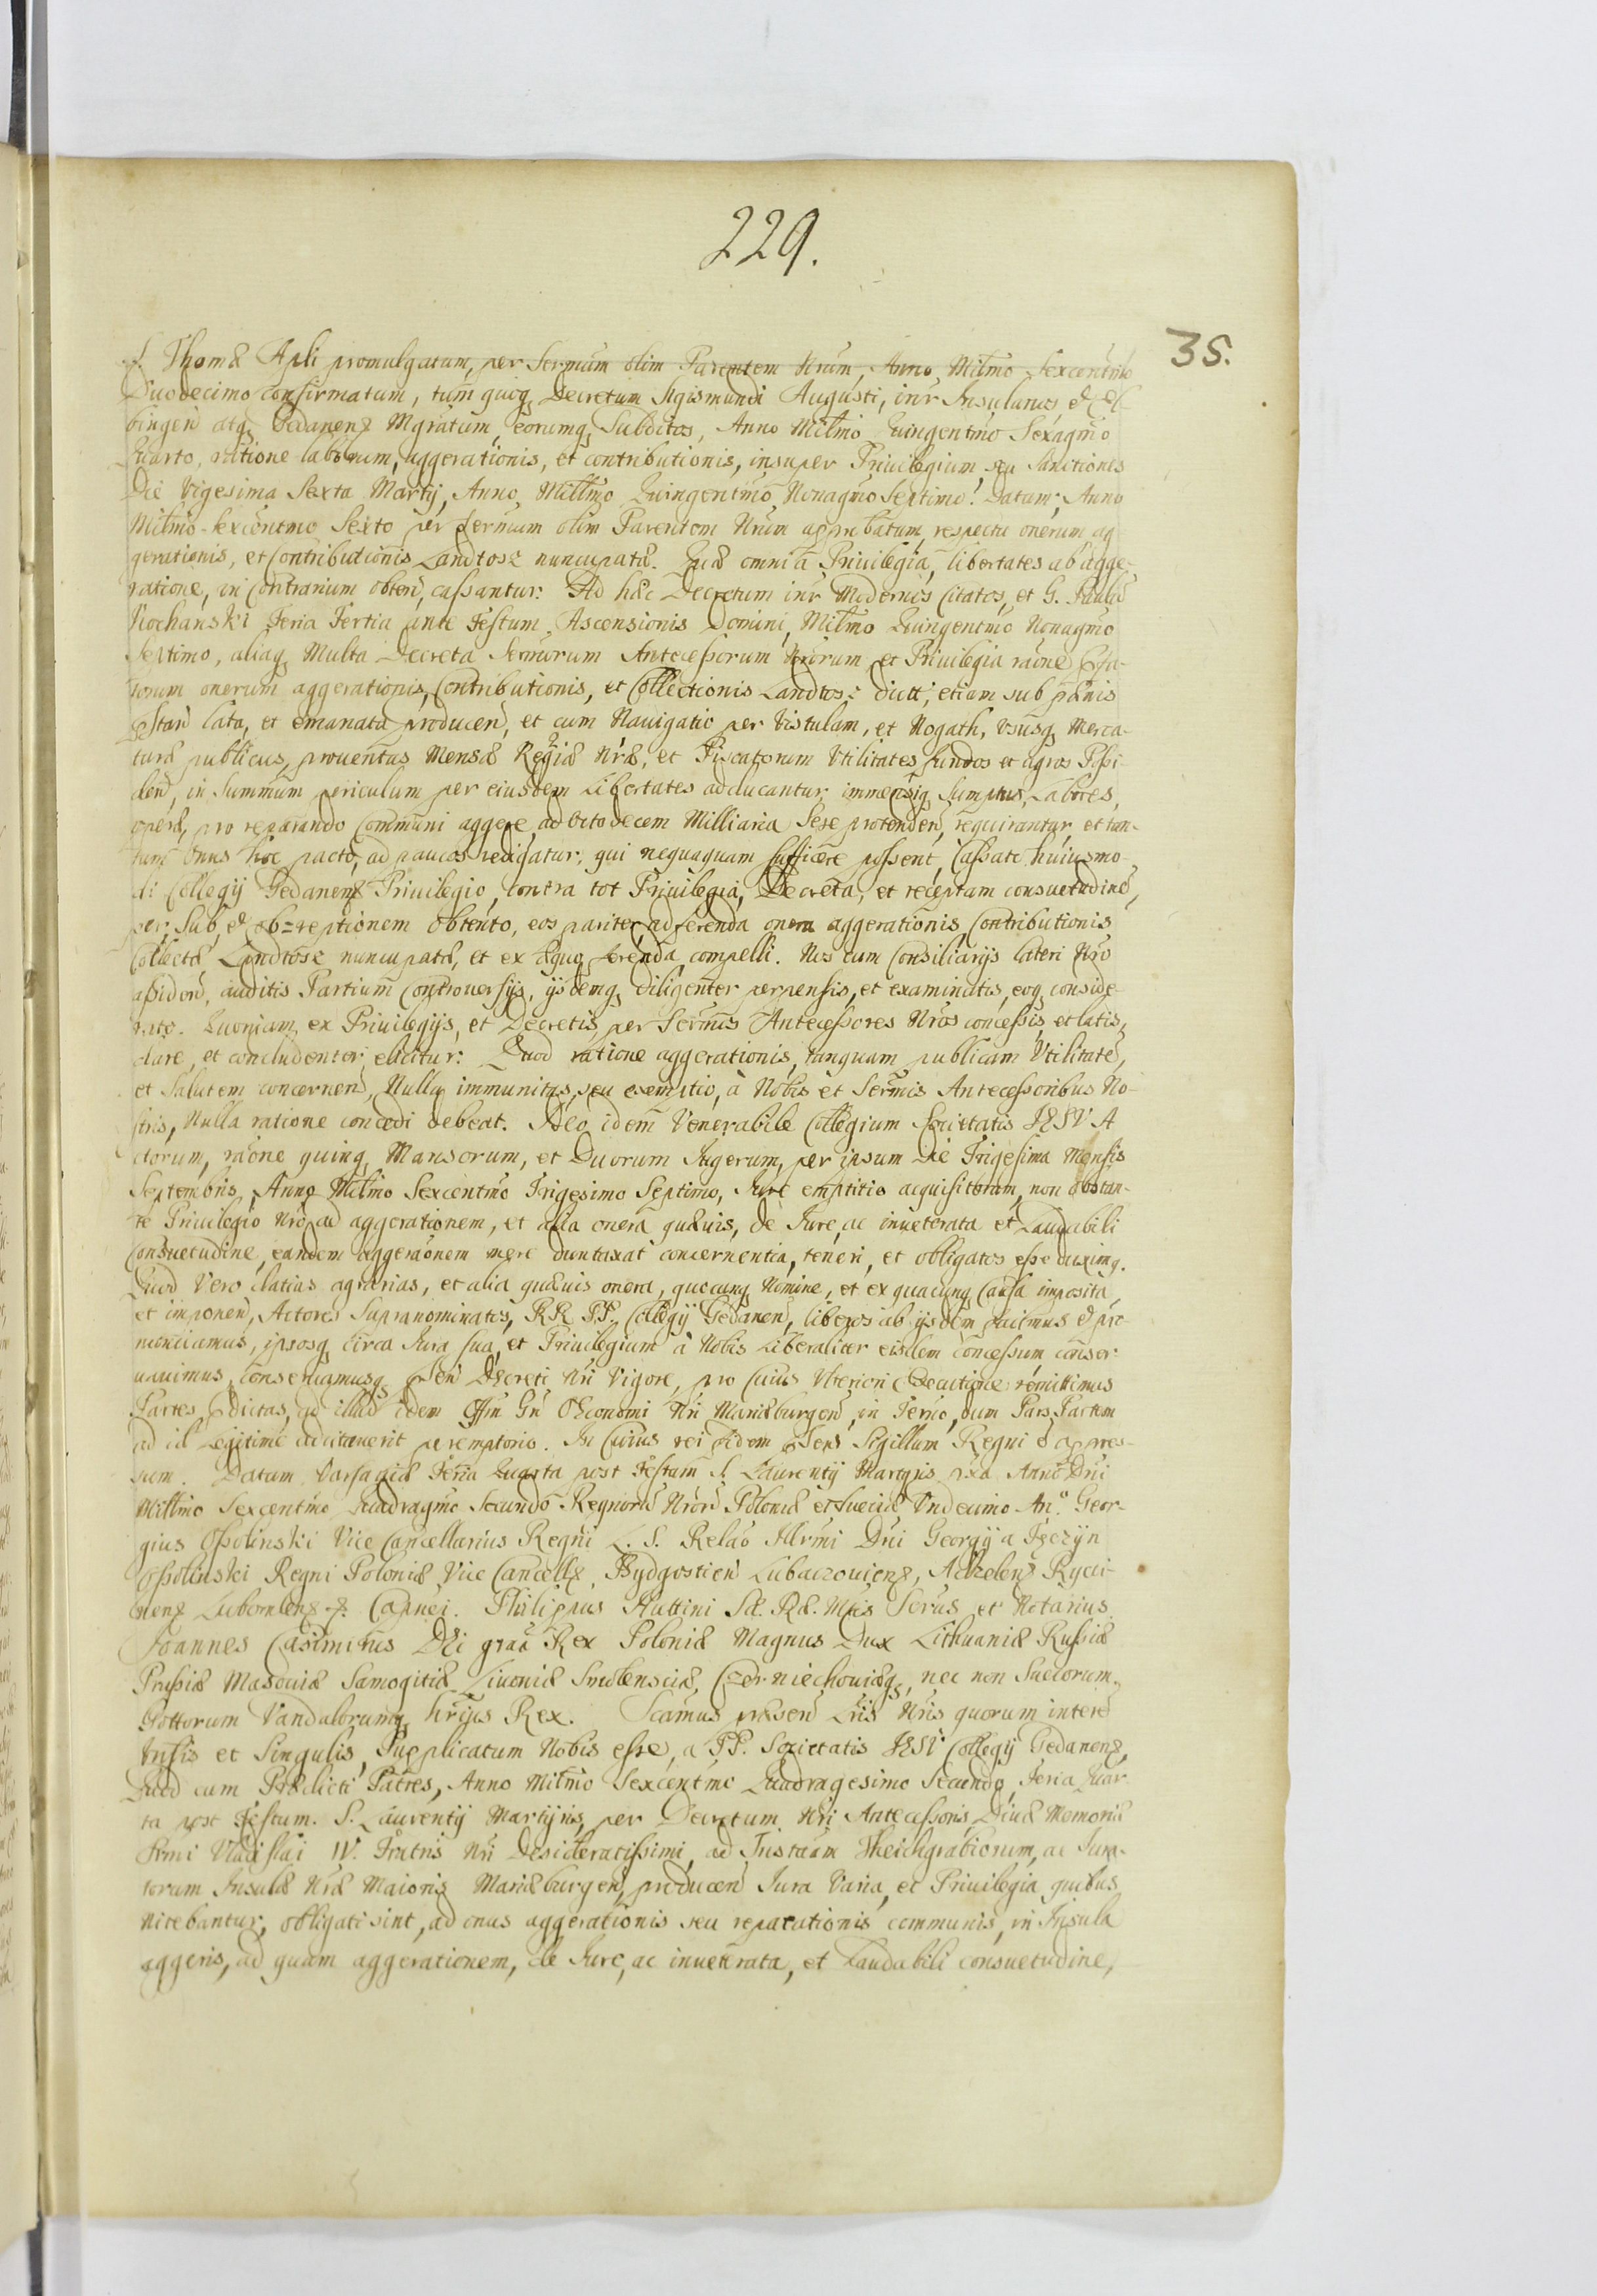 229.
35.
S. Thomæ Apli promulgatum, per Sermum olim Parentem Nrum, Anno Millmo Sexcentmo
Duodecimo confirmatum, tum quoq Decretum Sigismundi Augusti, inr Insulanos, & El-
bingen atq Gedanens Mgratum, eorumq Subditos, Anno Millmo Quingentmo Sexagmo
Quarto, ratione laborum, aggerationis, et contributionis, insuper Priuilegium seu Sanctiones
Die Vigesima Sexta Martij, Anno Millmo Quingentmo Nonagmo Septimo Datum; Anno
Millmo Sexcentmo Sexto per Sermum olim Parentem Nrum approbatum, respectu onerum ag
gerationis, et Contributionis Landtosz nuncupatæ. Quæ omnia Priuilegia, libertates ab agge-
ratione, in Contrarium obten, cassantur: Ad hæc Decretum inr Modernos Citatos, et G. Paulu
Kochanski Feria Tertia ante Festum Ascensionis Domini, Millmo Quingentmo Nonagmo
Septimo, aliaq Multa Decreta Sermorum Antecessorum Nrorum et Priuilegia raone
onerum aggerationis, Contributionis, et Collectionis Landtosz dictt; etiam sub pænis
lata, et emanata producen, et cum Nauigatio per Vistulam, et Nogath, Vsusq Merca-
turæ publicus, prouentus Mensæ Regiæ Nræ, et Piscatorum Vtilitates fundos et agros Possi-
den, in Summum periculum per eiusdem Libertates adducantur, immensiq Sumptus, Labores,
operæ, pro reparando Communi aggere, ad Octodecem Milliaria Sese protenden, requirantur, et tan-
tum Onus hoc pacto, ad paucos redigatur, qui nequaquam sufficere possent, Cassato huiusmo-
di Collegij Gedanens Priuilegio, contra tot Priuilegia, Decreta, et receptam consuetudine,
per Sub & ob=reptionem obtento, eos pariter ad ferenda onera aggerationis, Contributionis
Collectæ Landtosz nuncupatæ, et ex Æquo ferenda compelli. Nos cum Consiliarijs Lateri Nro
assiden, auditis Partium Controuersijs, ijsdemq diligenter perpensis, et examinatis, eoq conside
rato. Quoniam ex Priuilegijs, et Decretis per Sermos Antecessores Nros concessis, et latis,
clare, et concludenter elicitur: Quod ratione aggerationis, tanquam publicam Vtilitate,
et Salutem concernen, Nulla immunitas, seu exemptio, à Nobis et Sermis Antecessoribus No-
stris, Nulla ratione concedi debeat. Ideo idem Venerabile Collegium Societatis IESV A
ctorum, raone quinq Mansorum, et Duorum Iugerum, per ipsum Die Trigesima Mensis
Septembris, Anno Millmo Sexcentmo Trigesimo Septimo, Iure emptitio acquisitorum, non obstan-
te Priuilegio Nro, ad aggerationem, et alia onera quæuis, de Iure, ac inueterata et Laudabili
Consuetudine, eandem aggeraonem mere duntaxat concernentia, teneri, et obligatos esse duximq.
Quod Vero datias agrarias, et alia quæuis onera, quocunq Nomine, et ex quacunq Causa imposita,
et imponen, Actores Supranominatos, RR PP. Collegij Gedanen, liberos ab ijsdem facimus & pro
nunciamus, ipsosq circa Iura sua, et Priuilegium à Nobis Liberaliter eisdem concessum conser-
uauimus, conseruamusq Decreti Nri Vigore, pro Cuius Vlteriori Executione remittimus
Partes pdictas, ad illud idem Offm Gn OEconomi Nri Mariæburgen, in Termo, dum Pars Partem
ad id Legitime adcitauerit peremptorio. In Cuius rei fidem psens Sigillum Regni e appres-
sum. Datum Varsaviæ Feria Quarta post Festum S. Laurentij Martyris pxa Anno Dni
Millmo Sexcentmo Quadragmo Secundo Regnoru Nroru Poloniæ et Sueciæ Vndecimo Ano. Geor-
gius Ossolinski Vice Cancellarius Regni L. S. Relao Illrmi Dni Georgij a Tęczyn
Ossolinski Regni Poloniæ Vice Cancells, Bydgostien Lubaczouiens, Adzelens Ryci-
uens Lubomlens &. Capnei. Philippus Huttini Sæ. Ræ. Mtis Scrus et Notarius.
Joannes Casimirus Dei graa Rex Poloniæ Magnus Dux Lithuaniæ Russiæ
Prussiæ Masouiæ Samogitiæ Liuoniæ Smolensciæ, Czerniechouiæq, nec non Suecorum
Gottorum Vandalorumq hrijus Rex. Scamus præsen Lris Nris quorum intere
Vnsis et Singulis, Supplicatum Nobis esse, a PP. Societatis IESV Collegij Gedanens,
Quod cum Prædicti Patres, Anno Millmo Sexcentmo Quadragesimo Secundo, Feria Quar-
ta post Festum. S. Laurentij Martijris, per Decretum Nri Antecessoris, Diuæ Memoriæ
Srmi Vladislai IV. Fratris Nri Desideratissimi, ad Instaam Theichgrabiorum, ac Iura-
torum Insulæ Nræ Maioris Mariæburgen, producen Iura Varia, et Priuilegia, quibus
nitebantur, obligati sint, ad onus aggerationis seu reparationis communis, in Insula
aggeris, ad quam aggerationem, de Iure, ac inueterata, et Laudabili consuetudine,